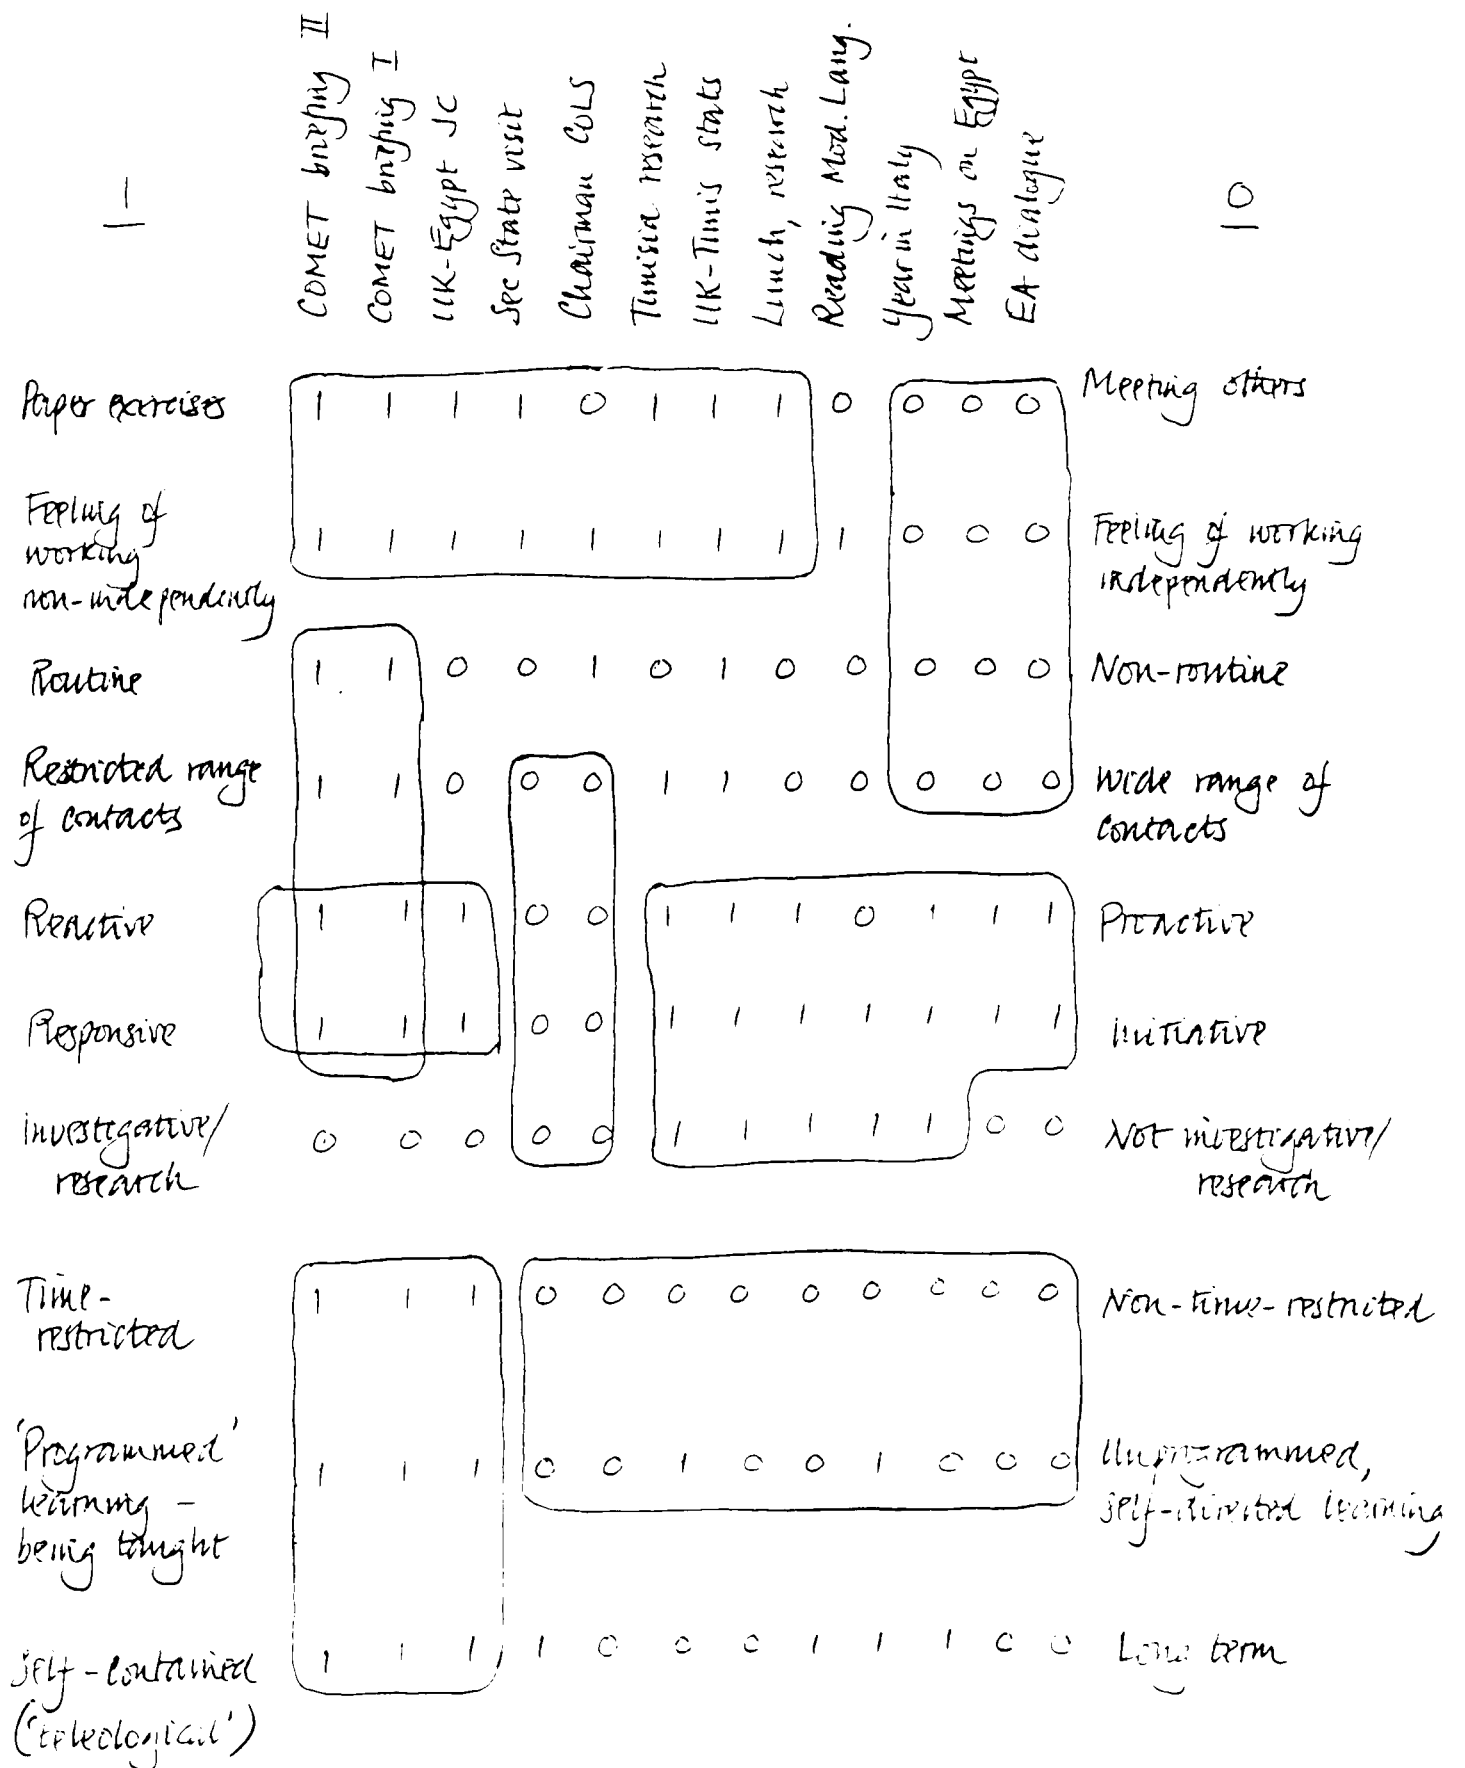 1
COMET briefing II
COMET briefing I
UK-Egypt JC
Sec State visit
Chairman COLS
Tunisia research
UK-Tunis stats
Lunch, research
Reading Mod. Lang.
Year in Italy
Meetings on Egypt
EA dialogue
0
Paper exercises 1 1 1 1 0 1 1 1 0 0 0 0 Meeting others
Feeling of
working
non-independently 1 1 1 1 1 1 1 1 1 0 0 0 Feeling of working
independently
Routine 1 1 0 0 1 0 1 0 0 0 0 0 Non-routine
Restricted range
of contacts 1 1 0 0 0 1 1 0 0 0 0 0 Wide range of
contacts
Reactive 1 1 1 0 0 1 1 1 0 1 1 1 Proactive
Responsive 1 1 1 0 0 1 1 1 1 1 1 1 Initiative
Investigative/
research 0 0 0 0 0 1 1 1 1 1 0 0 Not investigative/
research
Time-
restricted 1 1 1 0 0 0 0 0 0 0 0 0 Non-time-restricted
'Programmed'
learning -
being taught 1 1 1 0 0 1 0 0 1 0 0 0 Unprogrammed,
self-directed learning
Self-contained
('teleological') 1 1 1 1 0 0 0 1 1 1 0 0 Long term